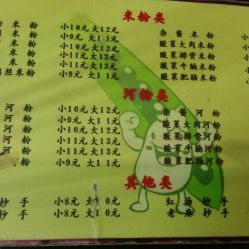 米粉类
米粉 小10元 大12元 杂酱米粉
米粉 小9元 大11元 酸菜大肉米粉
米粉 小10元 大12元 酸菜排骨米粉
米粉 小11元 大13元 酸菜牛腩米粉
丝米粉 小11元 大13元 酸菜肥肠米粉
小9元 大11元
河粉类
河粉 小10元 大12元 杂酱河粉
河粉 小9元 大11元 酸菜大肉河粉
河粉 小10元 大12元 酸菜排骨河粉
河粉 小11元 大13元 酸菜牛腩河粉
河粉 小11元 大13元 酸菜肥肠河粉
小9元 大11元
其他类
抄手 小8元 大10元 红汤抄手
抄手 小8元 大10元 老麻抄手